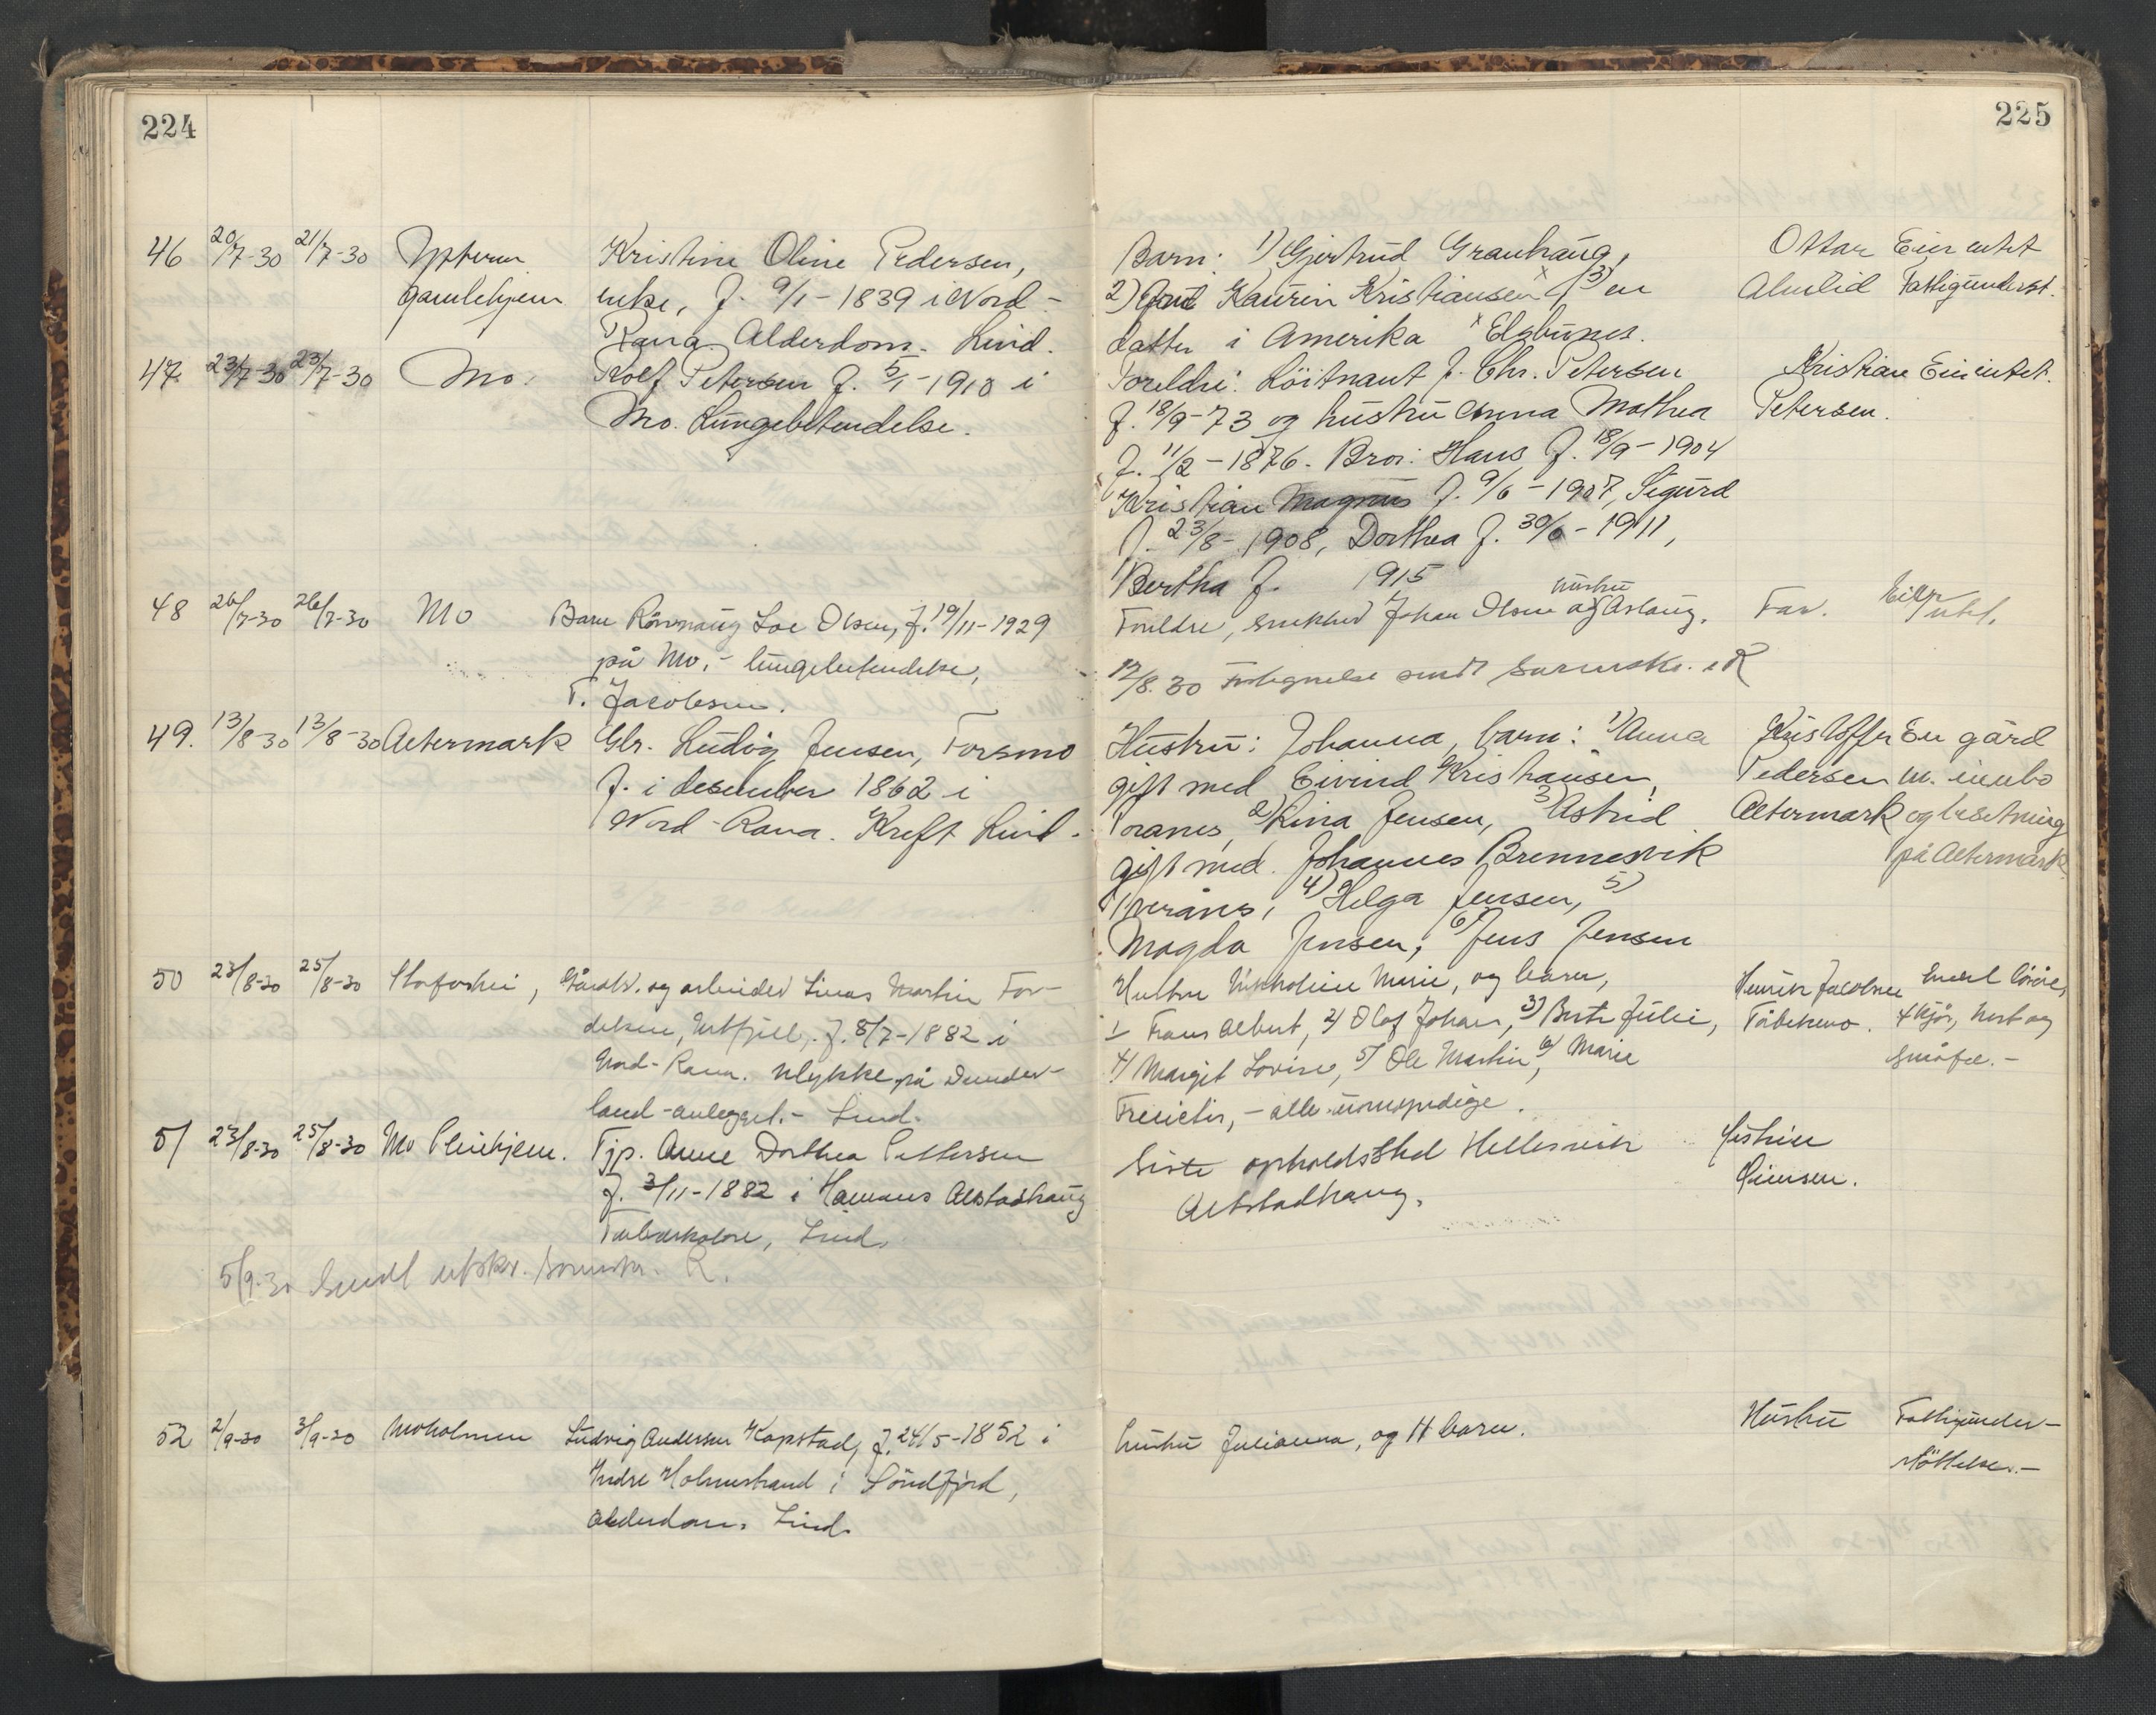 224
46 20/7-30 21/7-30 Ytteren Kristine Oline Pedersen,
gamlehjem enke, f. 9/1-1839 i Nord-
Rana. Alderdom. Lind.
47 23/7-30 23/7-30 Mo. Rolf Petersen f. 5/1-1910 i
Mo. Lungebetendelse.
48 26/7-30 26/7-30 Mo Barn Loe Olsen, f. 19/11-1929
på Mo, - lungebetendelse,
T. Jacobsen.
49. 13/8-30 13/8-30 Altermark Gbr. Ludvig Jensen, Forsmo
f. i desember 1862 i
Nord-Rana. Kreft Lind.
50 23/8-30 25/8-30 Storforshei, Gårdbr. og arbeider Linas Martin
f. 8/7-1882 i
Nord-Rana. Ulykke på Dunder-
land-anlegget.- Lind.
51 23/8-30 25/8-30 Mo Pleiehjem. Tjp. Anne Dorthea Pettersen
f. 3/11-1882 i Alstadhaug
Tuberkolose, Lind.
5/9-30 Sendt utskr. R.
52 2/9-30 3/9-30 Moholmen Ludvig Andersen Kopstad, f. 24/5-1852 i
Indre Holmestrand i Söndfjord,
alderdom. Lind.
225
Barn: 1) Gjertrud Grauhaug, Ottar Eier intet
2) Kaurin Kristiansen x 3) en Almlid Fattigunderst.
datter i Amerika x Elsbunes.
Foreldre: Löitnant J. Chr. Petersen Kristian Eier intet.
f. 18/9-73 og hustru Anna Mathea Petersen.
f. 11/2-1876. Bror: Hans f. 18/9-1904
Kristian Magnus f. 9/6-1907, Sigurd
f. 23/8-1908, Dorthea f. 30/6-1911,
Bertha f. 1915
hustru
Foreldre, snekker Johan Olsen og Aslaug. Far. Eier intet.
12/8.30 Fortegnelse sendt Sorenskr. i R
Hustru: Johanna, barn: 1) Anna Kristoffer En gård
gift med Eivind Kristiansen, Pedersen m. innbo
Toranes, 2) Rina Jensen, 3) Astrid Altermark og besetning
gift med. Johannes Brennesvik på Altermark
Tverånes, 4) Helga Jensen, 5)
Magda Jensen, 6) Jens Jensen
Hustru Marie, og barn, Henrik Jacobsen
1/ Frans Albert, 2/ Olaf Johan, 3/ Berte Julie, 4 kjör, hest og
4/ Margit Lovise, 5/ Ole Martin, 6/ Marie småfe.-
- alle umyndige.
Siste opholdssted Hellesvik
Alstadhaug.
hustru Julianna, og 11 barn. Hustru Fattigunder-
støttelse.-